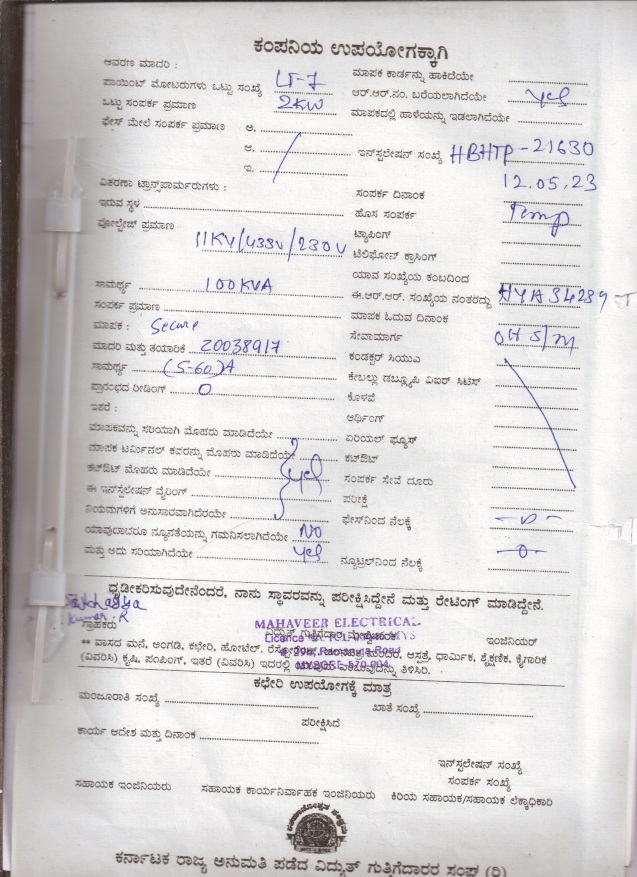 ಕಂಪನಿಯ ಉಪಯೋಗಕ್ಕಾಗಿ
ಆವರಣ ಮಾದರಿ :
ಮಾಪಕ ಕಾರ್ಡನ್ನು ಹಾಕಿದೆಯೇ
ಪಾಯಿಂಟ್ ಮೋಟರುಗಳು ಒಟ್ಟು ಸಂಖ್ಯೆ LT-7
ಆರ್.ಆರ್.ನಂ. ಬರೆಯಲಾಗಿದೆಯೇ Yes
ಒಟ್ಟು ಸಂಪರ್ಕ ಪ್ರಮಾಣ 2KW
ಮಾಪಕದಲ್ಲಿ ಹಾಳೆಯನ್ನು ಇಡಲಾಗಿದೆಯೇ
ಫೇಸ್ ಮೇಲೆ ಸಂಪರ್ಕ ಪ್ರಮಾಣ ಅ.
ಆ.
ಇ.
ಇನ್‌ಸ್ಟಲೇಷನ್ ಸಂಖ್ಯೆ HBHTP-21630
ವಿತರಣಾ ಟ್ರಾನ್ಸ್‌ಫಾರ್ಮರುಗಳು :
ಸಂಪರ್ಕ ದಿನಾಂಕ 12.05.23
ಇರುವ ಸ್ಥಳ
ಹೊಸ ಸಂಪರ್ಕ Temp
ವೋಲ್ಟೇಜ್ ಪ್ರಮಾಣ 11KV/433V/230V
ಟ್ಯಾಪಿಂಗ್
ಟೆಲಿಫೋನ್ ಕ್ರಾಸಿಂಗ್
ಯಾವ ಸಂಖ್ಯೆಯ ಕಂಬದಿಂದ
ಸಾಮರ್ಥ್ಯ 100KVA
ಈ.ಆರ್.ಆರ್. ಸಂಖ್ಯೆಯ ನಂತರದ್ದು HYA34289
ಸಂಪರ್ಕ ಪ್ರಮಾಣ
ಮಾಪಕ ಓದುವ ದಿನಾಂಕ
ಮಾಪಕ : Secure
ಸೇವಾಮಾರ್ಗ OH S/M
ಮಾದರಿ ಮತ್ತು ತಯಾರಿಕೆ 20038917
ಕಂಡಕ್ಟರ್ ಸಿಯುಎ
ಸಾಮರ್ಥ್ಯ (5-60)A
ಕೇಬಲ್ಲು ಡಬ್ಲ್ಯೂಪಿ ವಿಐರ್ ಸಿಟಿಸ್
ಪ್ರಾರಂಭದ ರೀಡಿಂಗ್ 0
ಕೊಳವೆ
ಇತರೆ :
ಆರ್ಥಿಂಗ್
ಮಾಪಕವನ್ನು ಸರಿಯಾಗಿ ಮೊಹರು ಮಾಡಿದೆಯೇ
ಏರಿಯಲ್ ಫ್ಯೂಸ್
ಮಾಪಕ ಟರ್ಮಿನಲ್ ಕವರನ್ನು ಮೊಹರು ಮಾಡಿದೆಯೇ
ಕಟ್‌ಔಟ್
ಕಟ್‌ಔಟ್ ಮೊಹರು ಮಾಡಿದೆಯೇ Yes
ಸಂಪರ್ಕ ಸೇವೆ ದೂರು
ಈ ಇನ್‌ಸ್ಟಲೇಷನ್ ವೈರಿಂಗ್
ಪರೀಕ್ಷೆ
ನಿಯಮಗಳಿಗೆ ಅನುಸಾರವಾಗಿದೆಯೇ
ಫೇಸ್‌ನಿಂದ ನೆಲಕ್ಕೆ -0-
ಯಾವುದಾದರೂ ನ್ಯೂನತೆಯನ್ನು ಗಮನಿಸಲಾಗಿದೆಯೇ NO
ಮತ್ತು ಅದು ಸರಿಯಾಗಿದೆಯೇ Yes
ನ್ಯೂಟ್ರಲ್‌ನಿಂದ ನೆಲಕ್ಕೆ -0-
ಧೃಡೀಕರಿಸುವುದೇನೆಂದರೆ, ನಾನು ಸ್ಥಾವರವನ್ನು ಪರೀಕ್ಷಿಸಿದ್ದೇನೆ ಮತ್ತು ರೇಟಿಂಗ್ ಮಾಡಿದ್ದೇನೆ.
Kumar.R
ಗ್ರಾಹಕರು
MAHAVEER ELECTRICAL
ವಿದ್ಯುತ್ ಗುತ್ತಿಗೆದಾರ
ಇಂಜಿನಿಯರ್
** ವಾಸದ ಮನೆ, ಅಂಗಡಿ, ಕಛೇರಿ, ಹೋಟೆಲ್, ಆಸ್ಪತ್ರೆ, ಧಾರ್ಮಿಕ, ಶೈಕ್ಷಣಿಕ, ಕೈಗಾರಿಕೆ
(ವಿವರಿಸಿ) ಕೃಷಿ, ಪಂಪಿಂಗ್, ಇತರೆ (ವಿವರಿಸಿ) ಇದರಲ್ಲಿ ತಿಳಿಸಿರಿ.
MYSORE-570 004
ಕಛೇರಿ ಉಪಯೋಗಕ್ಕೆ ಮಾತ್ರ
ಮಂಜೂರಾತಿ ಸಂಖ್ಯೆ
ಖಾತೆ ಸಂಖ್ಯೆ
ಪರೀಕ್ಷಿಸಿದೆ
ಕಾರ್ಯ ಆದೇಶ ಮತ್ತು ದಿನಾಂಕ
ಇನ್‌ಸ್ಟಲೇಷನ್ ಸಂಖ್ಯೆ
ಸಂಪರ್ಕ ಸಂಖ್ಯೆ
ಸಹಾಯಕ ಇಂಜಿನಿಯರು ಸಹಾಯಕ ಕಾರ್ಯನಿರ್ವಾಹಕ ಇಂಜಿನಿಯರು ಕಿರಿಯ ಸಹಾಯಕ/ಸಹಾಯಕ ಲೆಕ್ಕಾಧಿಕಾರಿ
ಕರ್ನಾಟಕ ರಾಜ್ಯ ಅನುಮತಿ ಪಡೆದ ವಿದ್ಯುತ್ ಗುತ್ತಿಗೆದಾರರ ಸಂಘ (ರಿ)